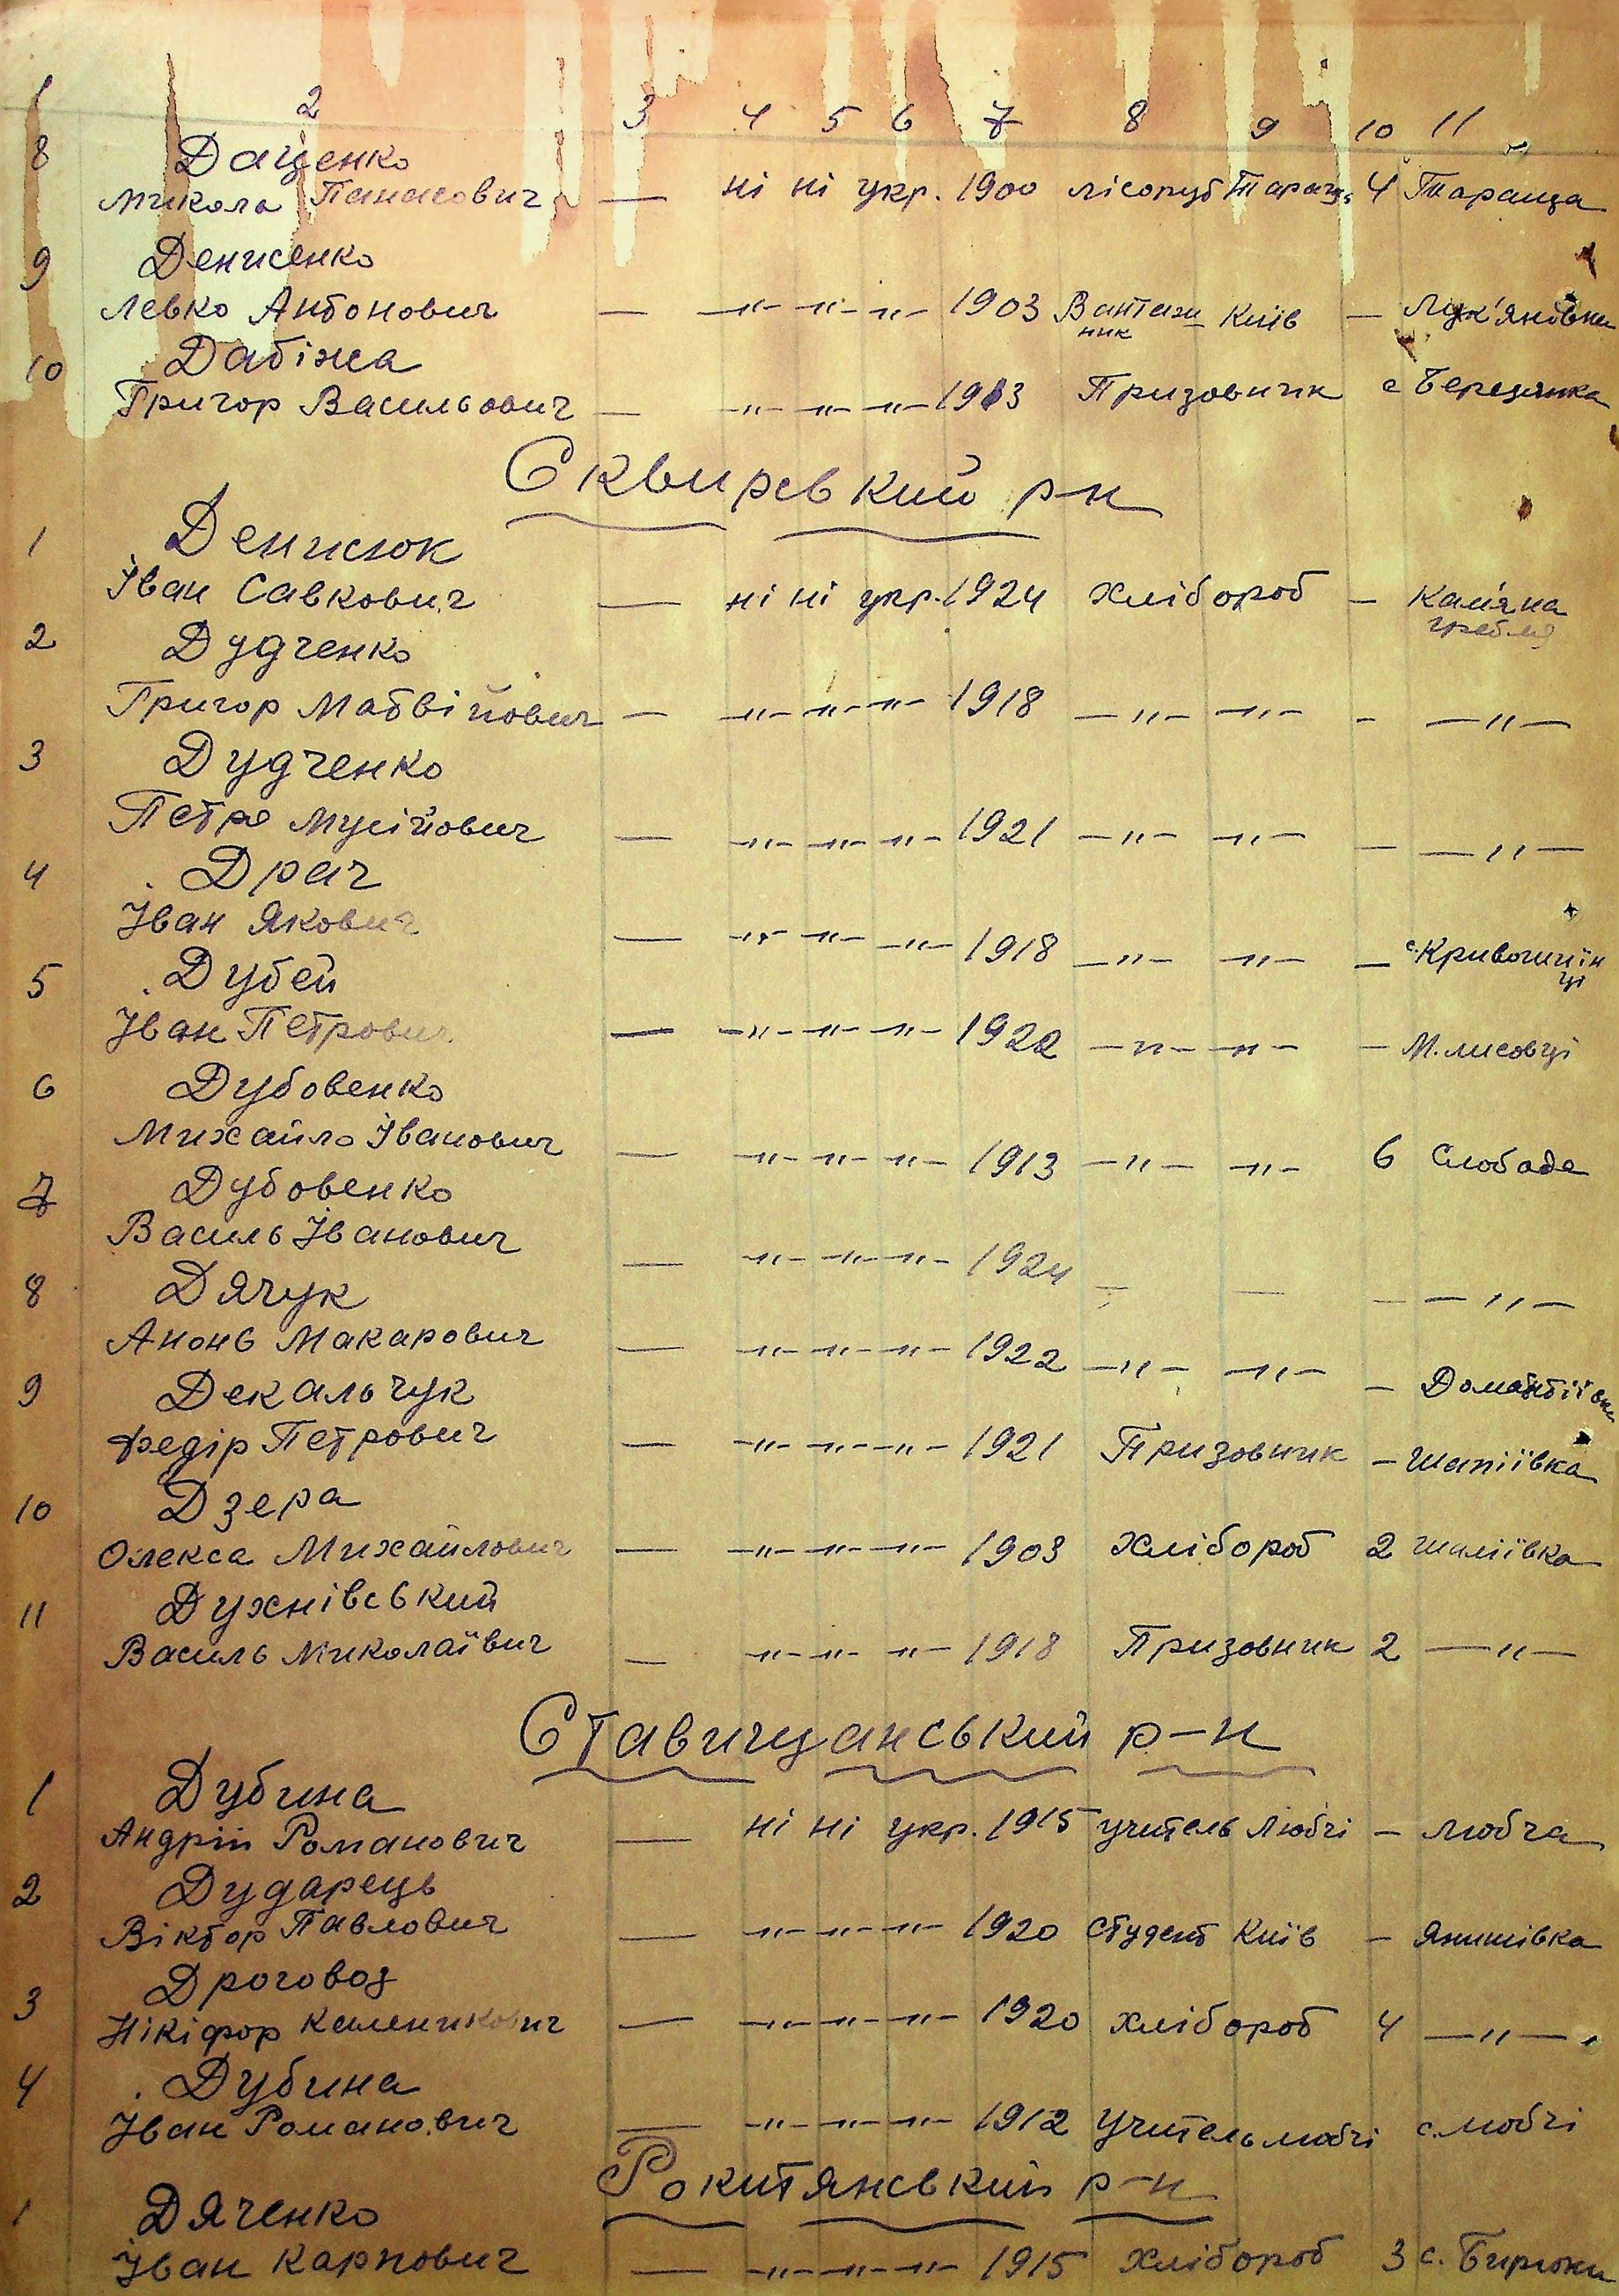 1 2 3 4 5 6 7 8 9 10 11
8 Даценко
Микола Панасович — ні ні укр. 1900 лісоруб Таращ. 4 Тараща
9 Денисенко
Левко Антонович — —"— —"— —"— 1903 Вантаж- Київ — Лук'янівка
ник
10 Дабіжа
Григор Васильович — —"— —"— —"— 1913 Призовник с Березянка
Сквирський р-н
1 Денисюк
Іван Савкович — ні ні укр. 1924 хлібороб — Кам'яна
гребля
2 Дудченко
Григор Матвійович — —"— —"— —"— 1918 —"— —"— — —"—
3 Дудченко
Петро Мусійович — —"— —"— —"— 1921 —"— —"— — —"—
4 Драч
Іван Якович — —"— —"— —"— 1918 —"— —"— — с. Кривошиїн
ці
5 Дубей
Іван Петрович — —"— —"— —"— 1922 —"— —"— — М. лисовці
6 Дубовенко
Михайло Іванович — —"— —"— —"— 1913 —"— —"— 6 Слобода
7 Дубовенко
Василь Іванович — —"— —"— —"— 1924 — — — —"—
8 Дячук
Макарович — —"— —"— —"— 1922 —"— —"— — Домантіївка
9 Декальчук
Федір Петрович — —"— —"— —"— 1921 Призовник — Шапіївка
10 Дзера
Олекса Михайлович — —"— —"— —"— 1903 хлібороб 2 Шапіївка
11 Духнівський
Василь Миколаївич — —"— —"— —"— 1918 Призовник 2 —"—
Ставищанський р-н
1 Дубина
Андрій Романович — ні ні укр. 1915 учитель Любчі — Любча
2 Дударець
Віктор Павлович — —"— —"— —"— 1920 студент Київ — Янишівка
3 Дроговоз
Нікіфор Каленикович — —"— —"— —"— 1920 хлібороб 4 —"—
4 Дубина
Іван Романович — —"— —"— —"— 1912 Учитель любчі с. любчі
Рокитянський р-н
1 Дяченко
Іван Карпович — —"— —"— —"— 1915 хлібороб 3 с. Бирюки